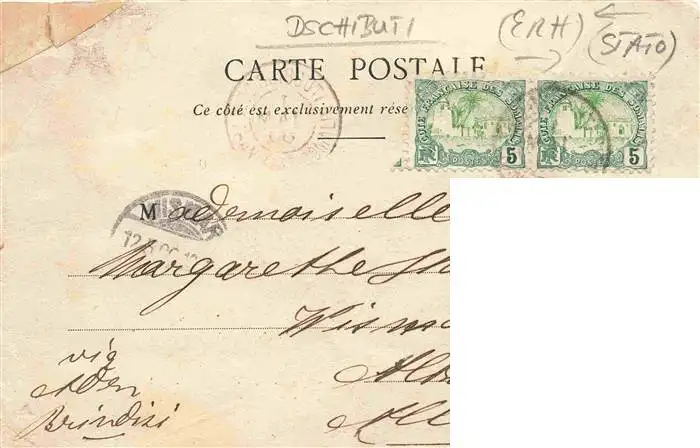 DSCHIBUTI
(ERH)
(STATO)
CARTE POSTALE
Ce côté est exclusivement rése
COTE FRANÇAISE DES SOMALIS
POSTES
5
COTE FRANÇAISE DES SOMALIS
POSTES
5
WISM
12
Mademoiselle
Margarethe
Wism
via
Aden
Brindisi